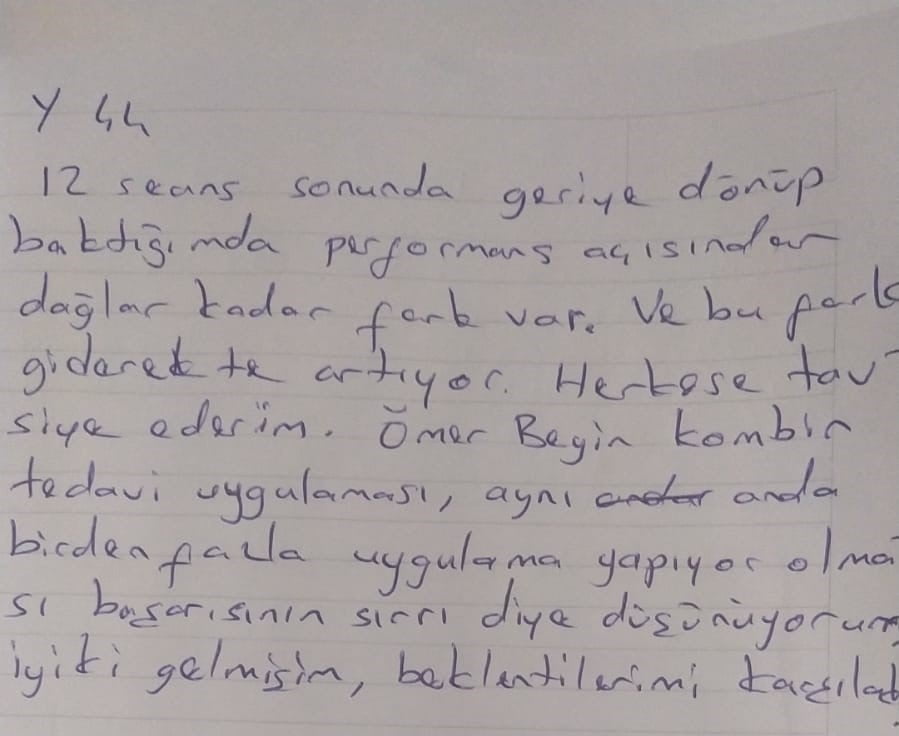 Y 44
12 seans sonunda geriye dönüp
baktığımda performans açısından
dağlar kadar fark var. Ve bu fark
giderek te artıyor. Herkese tav
siye ederim. Ömer Begin kombin
tedavi uygulaması, aynı anda
birden fazla uygulama yapıyor olma
sı başarısının sırrı diye düşünüyorum
iyiki gelmişim, beklentilerimi karşıladı